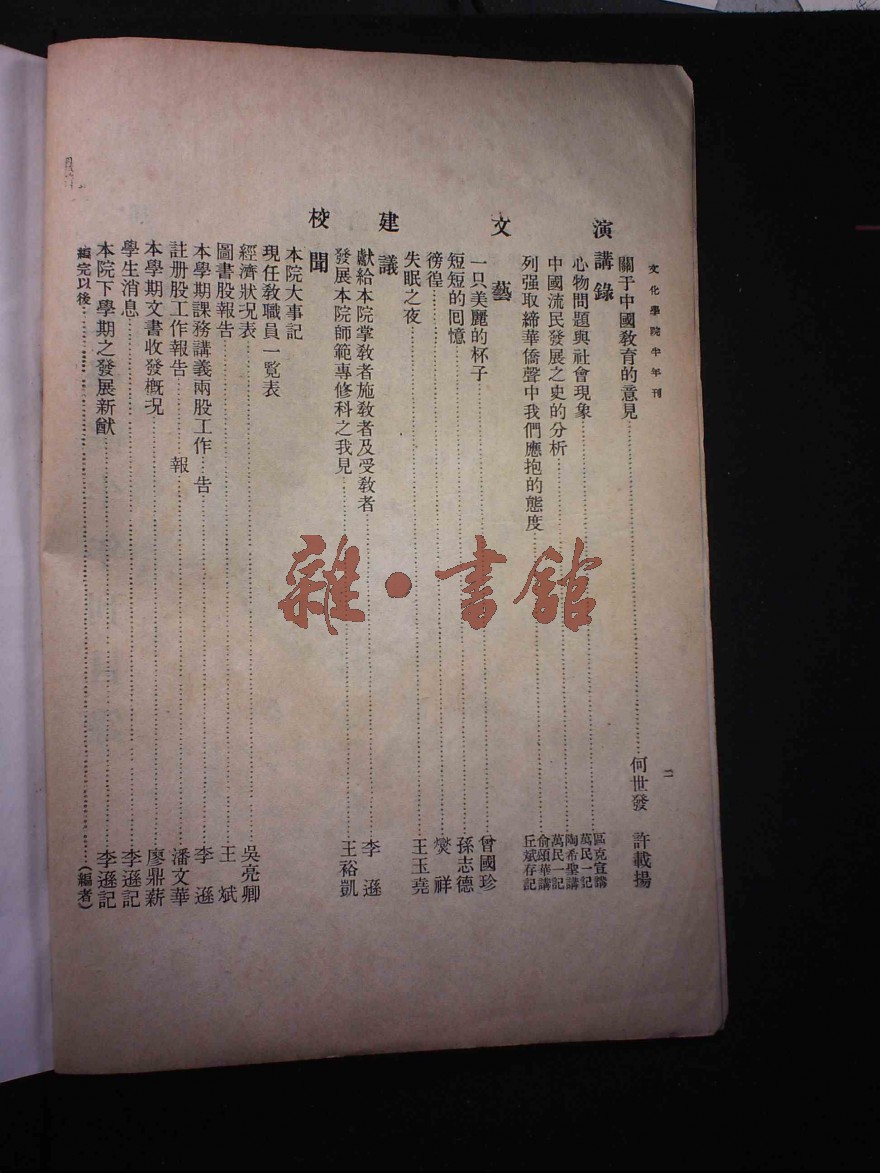 文化學院半年刊
二
關于中國教育的意見……何世發 許載揚
演講錄
心物問題與社會現象……區克宣講 萬民一記
中國流民發展之史的分析……陶希聖講 萬民一記
列强取締華僑聲中我們應抱的態度……俞頌華講 丘斌存記
文藝
一只美麗的杯子……曾國珍
短短的回憶……孫志德
徬徨……燮祥
失眠之夜……王玉堯
建議
獻給本院掌教者施教者及受教者……李遜
發展本院師範專修科之我見……王裕凱
校聞
本院大事記
現任教職員一覧表
經濟狀況表……吳亮卿
圖書股報告……王斌
本學期課務講義兩股工作 告……李遜
註册股工作報告……報……潘文華
本學期文書收發概況……廖鼎薪
學生消息……李遜記
本院下學期之發展新猷……李遜記
編完以後……(編者)
雜·書館